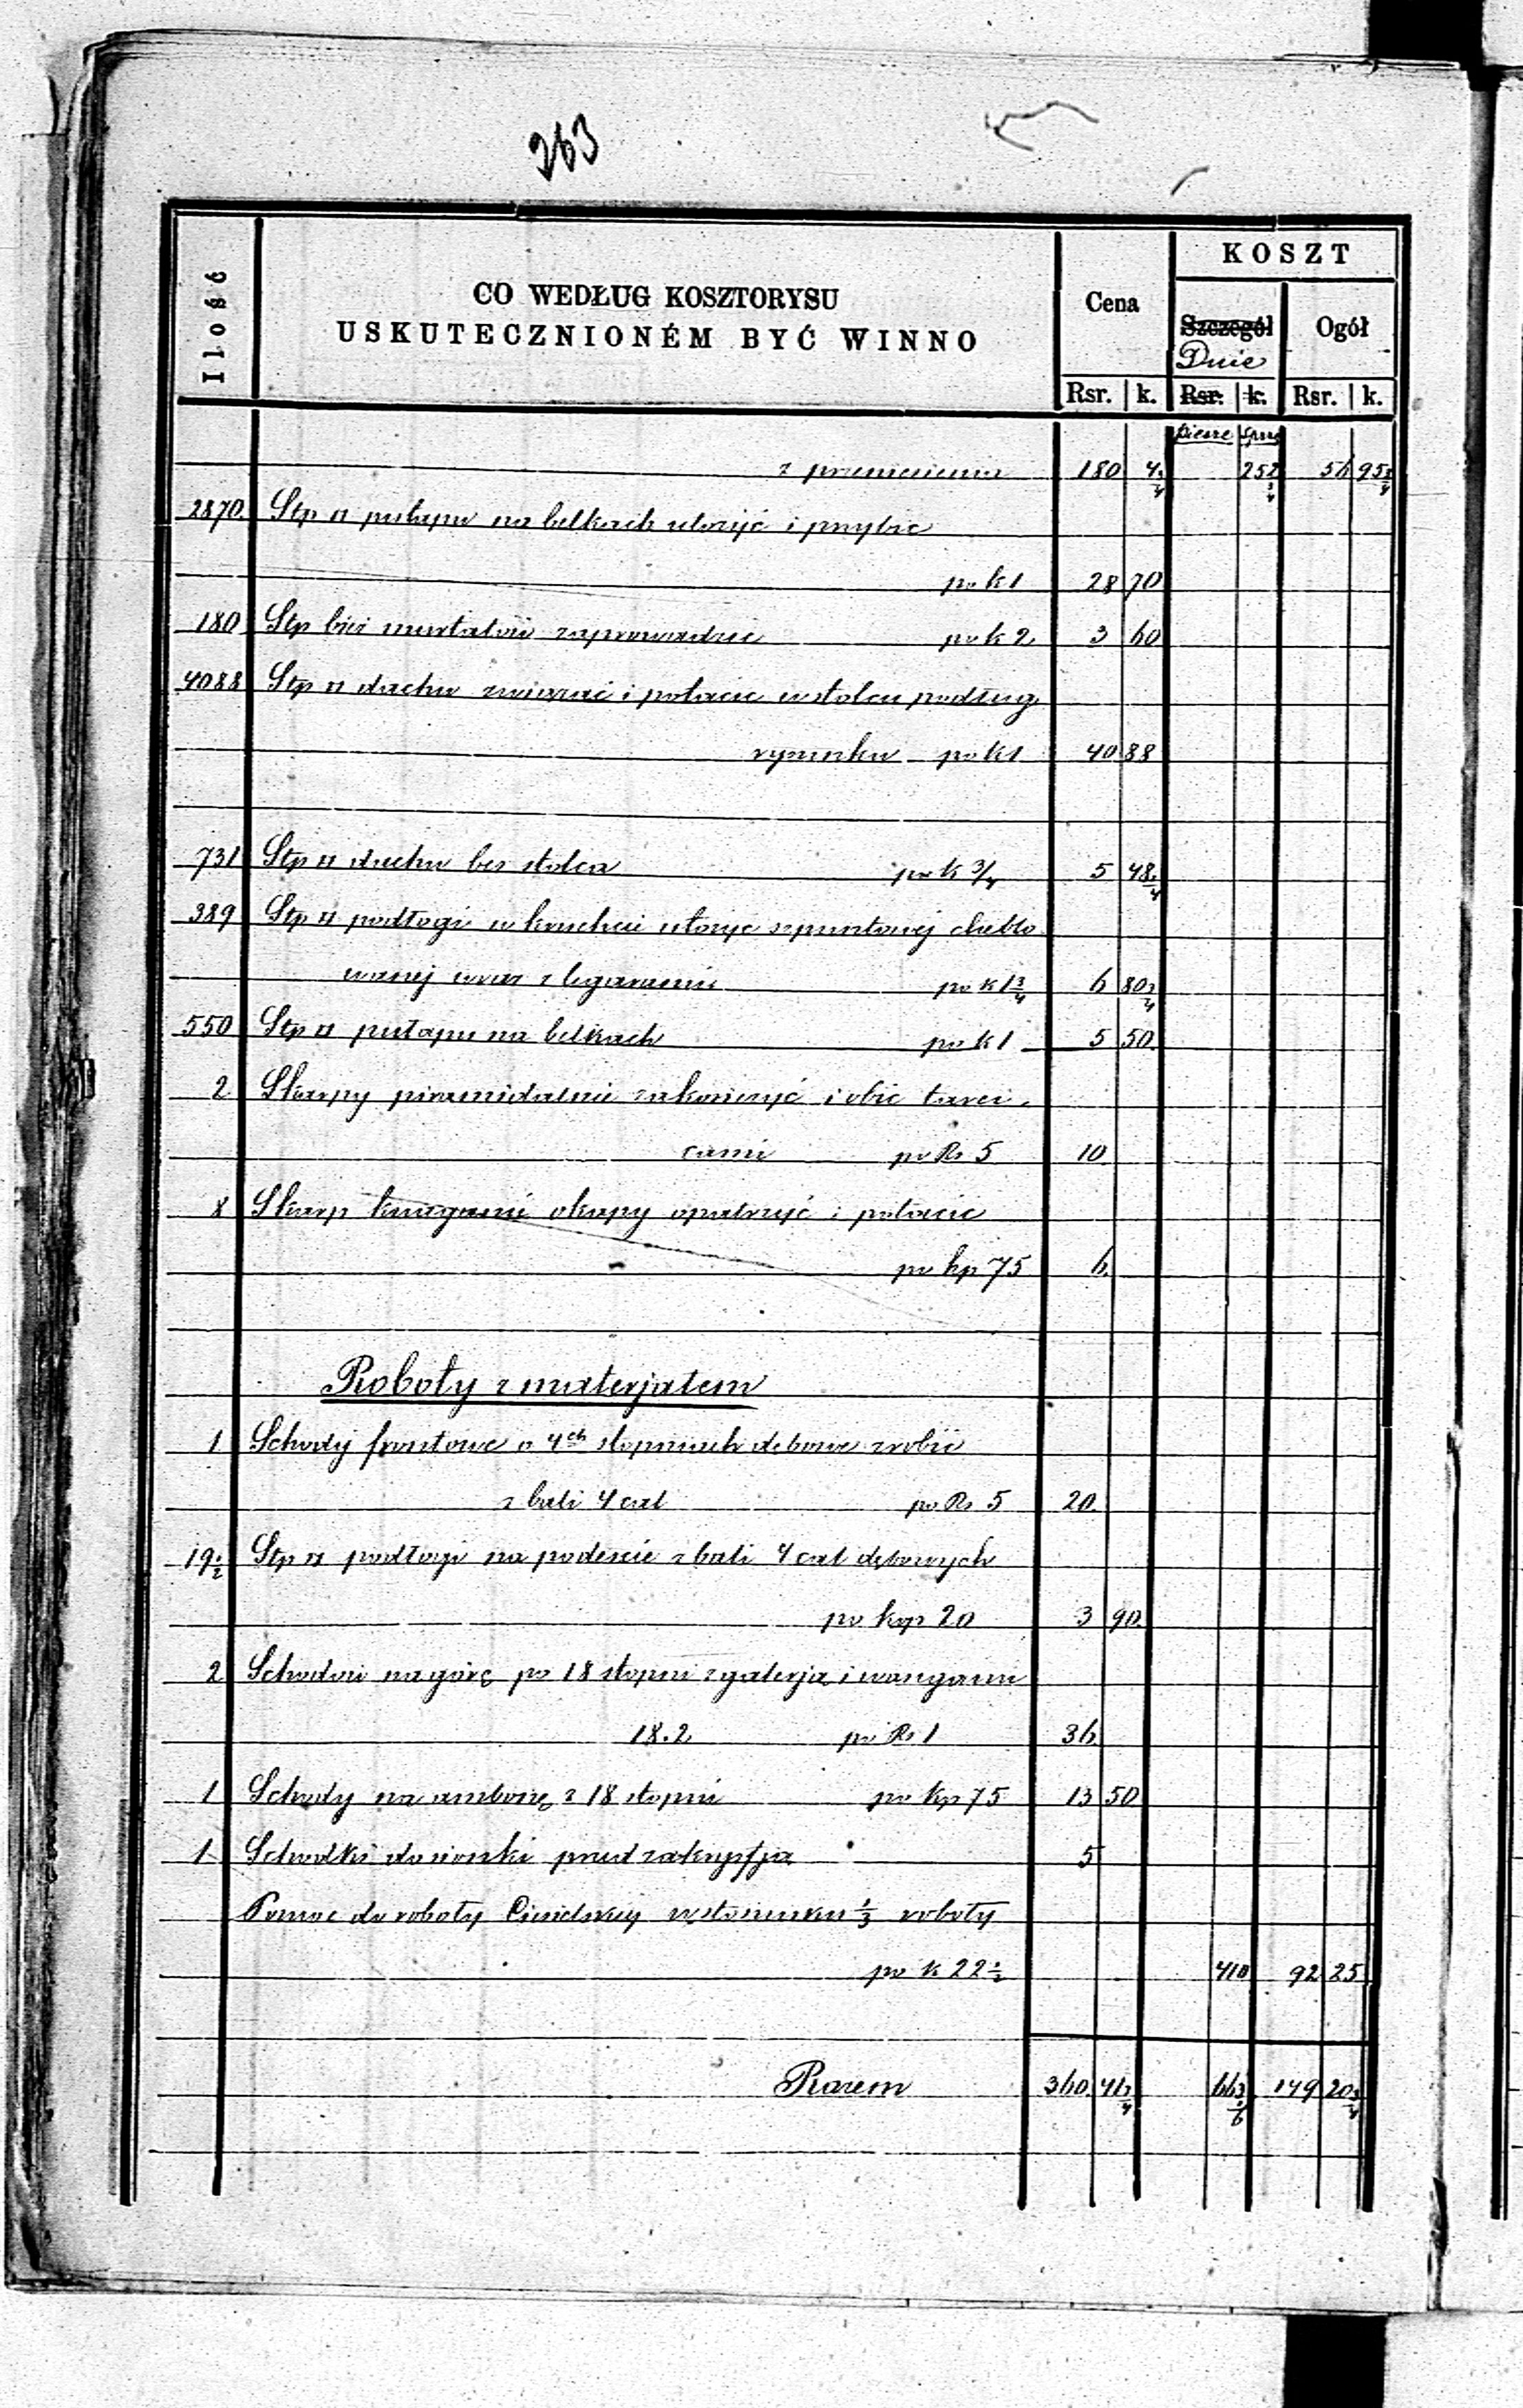 263
Ilość
CO WEDŁUG KOSZTORYSU
USKUTECZNIONÉM BYĆ WINNO
Cena
KOSZT
Szczegół
Dnie
Ogół
Rsr. k. Rsr. k. Rsr. k.
piesze sprz
z przeniesienia 180 4 1/4 252 3/4 56 95 3/4
2870 Stp □ pułapu na belkach ułożyć i przybić
po k 1 28 70
180 Stp murłatów zaprowadzić po k 2 3 60
4088 Stp □ dachu związać i połacić w stolcu podług
rysunku po k 1 40 88
731 Stp □ dachu bez stolca po k 3/4 5 48 1/4
389 Stp □ podłogi w kruchcie ułożyć szpuntowej cheblo
wanej wraz z legarami po k 1 3/4 6 80 3/4
550 Stp □ pułapu na belkach po k 1 5 50
2 Skarpy piramidalnie zakończyć i obić tarci-
cami po Rs 5 10
8 Skarp knagami okapy opatrzyć i połacić
po kp 75 6
Roboty z materjałem
1 Schody frontowe o 4ch stopniach dębowe zrobić
z bali 4 cal po Rs 5 20
19 1/2 Stp □ podłogi na podeście z bali 4 cal dębowych
po kop 20 3 90
2 Schodów na górę po 18 stopni z galerją i wangami
18.2 po Rs 1 36
1 Schody na ambonę z 18 stopni po kp 75 13 50
1 Schodki do sionki przed zakrystją 5
Pomoc do roboty Ciesielskiej w stosunku 1/3 roboty
po k 22 1/2 410 92 25
Razem 360 41 3/4 663 1/6 149 20 3/4